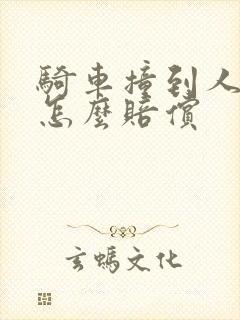 騎車撞到人
怎麼賠償
玄螞文化